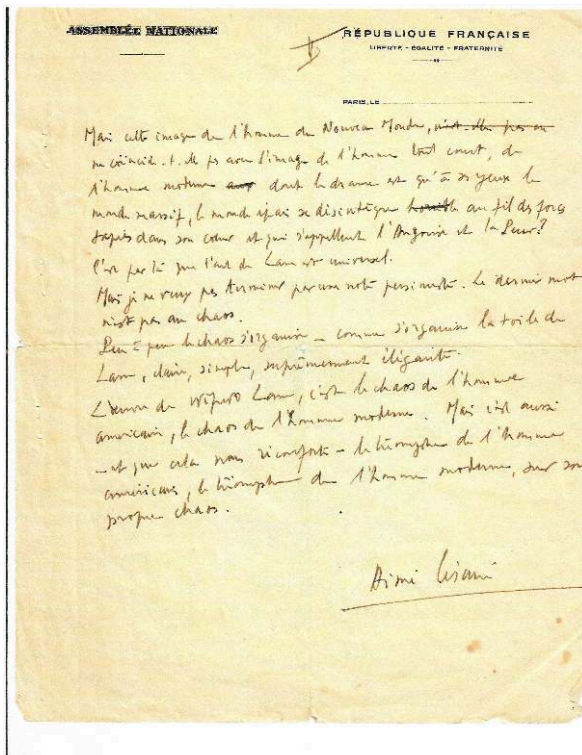 ASSEMBLÉE NATIONALE
V
RÉPUBLIQUE FRANÇAISE
LIBERTÉ - ÉGALITÉ - FRATERNITÉ
PARIS, LE
Mais cette image de l'homme du Nouveau Monde, n'est-elle pas en
ne coïncide-t-elle pas avec l'image de l'homme tout court, de
l'homme moderne dont le drame est qu'à ses yeux le
monde massif, le monde épais se désintègre au fil des forces
tapies dans son cœur et qui s'appellent l'Angoisse et la Peur?
C'est par là que l'art de Lam est universel.
Mais je ne veux pas terminer par une note pessimiste. Le dernier mot
n'est pas au chaos.
Peu à peu le chaos s'organise - comme s'organise la toile de
Lam, claire, simple, suprêmement élégante.
L'œuvre de Wifredo Lam, c'est le chaos de l'homme
américain, le chaos de l'homme moderne. Mais c'est aussi
- et que cela nous réconforte - le triomphe de l'homme
américain, le triomphe de l'homme moderne, sur son
propre chaos.
Aimé Césaire